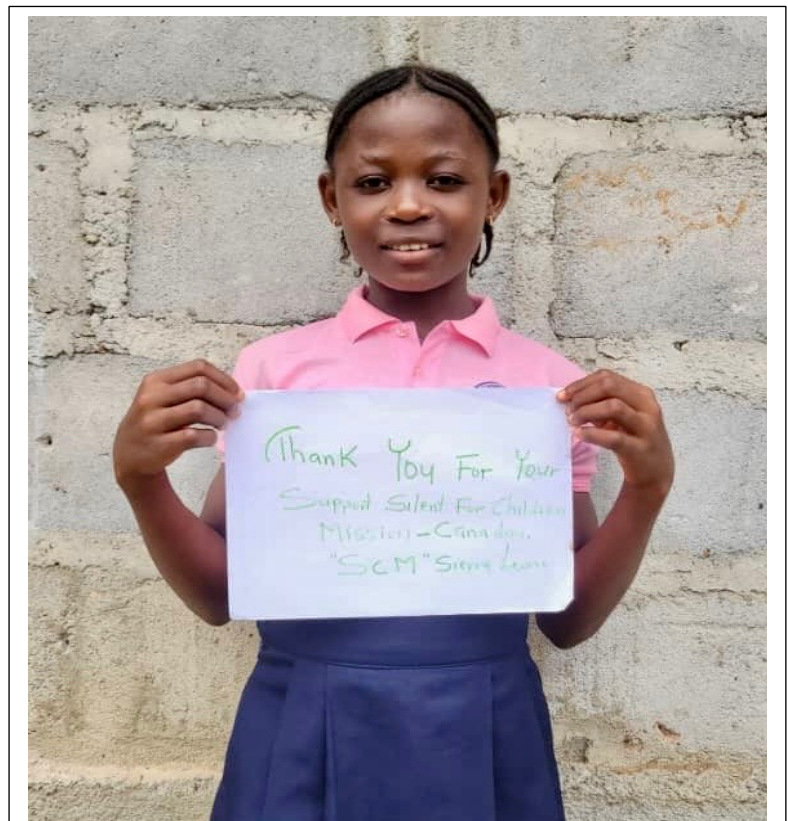 Thank You For Your
Support Silent For Children
Mission - Canada.
"SCM" Sierra Leone